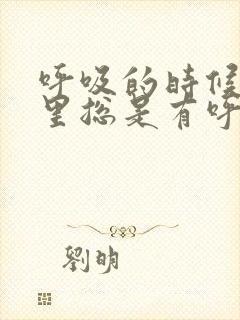 呼吸的时候
里总是有呼
劉明